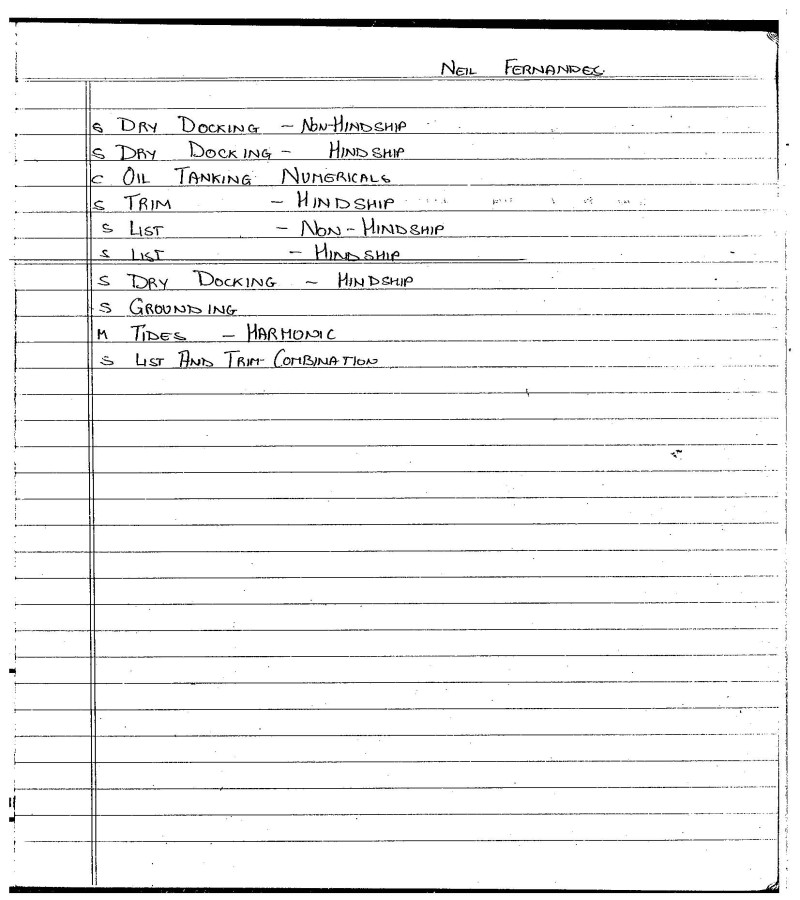 NEIL FERNANDES
S DRY DOCKING - NON-HINDSHIP
S DRY DOCKING - HINDSHIP
C OIL TANKING NUMERICALS
S TRIM - HINDSHIP
S LIST - NON-HINDSHIP
S LIST - HINDSHIP
S DRY DOCKING - HINDSHIP
S GROUNDING
M TIDES - HARMONIC
S LIST AND TRIM COMBINATION